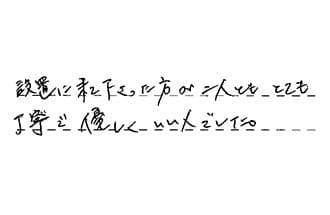 設置に来て下さった方が二人ともとても
丁寧で優しくいい人でした。